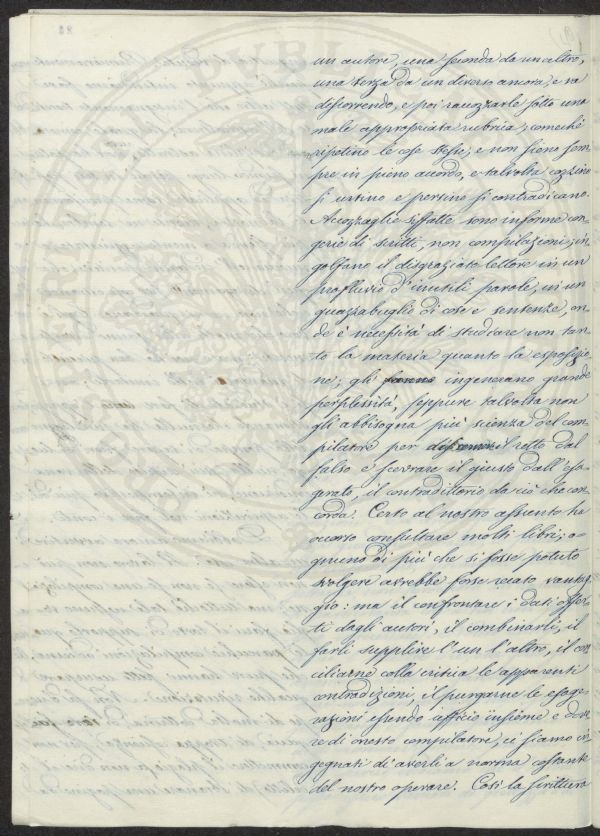 un autore, una seconda da un altro,
una terza da un diverso ancora, e va
discorrendo, e poi racozzarle sotto una
male appropriata rubrica; comechè
ripetino le cose stesse; e non sieno sem
pre in pieno accordo, e talvolta cozzino
si urtino e persino si contradicano.
Accozzaglie siffatte sono informe con
gerie di scritti, non compilazioni; in
golfano il disgraziato lettore in un
profluvio d'inutili parole, in un
guazzabuglio di cose e sentenze, on
de è necessità di studiare non tan
to la materia quanto la esposizio
ne; gli ingenerano grande
perplessità, seppure talvolta non
gli abbisogna più scienza del com
pilatore per il retto dal
falso e scevrare il giusto dall'esa
gerato, il contradittorio da ciò che con
corda. Certo al nostro assunto ha
occorso consultare molti libri; o
gnuno di più che si fosse potuto
svolgere avrebbe forse recato vantag
gio: ma il confrontare i dati offer
ti dagli autori, il combinarli, il
farli supplire l'un l'altro, il con
ciliarne colla critica le apparenti
contradizioni, il purgarne le esage
razioni essendo officio insieme e dove
re di onesto compilatore, ci siamo in
gegnati di averli a norma costante
del nostro operare. Così la scrittura